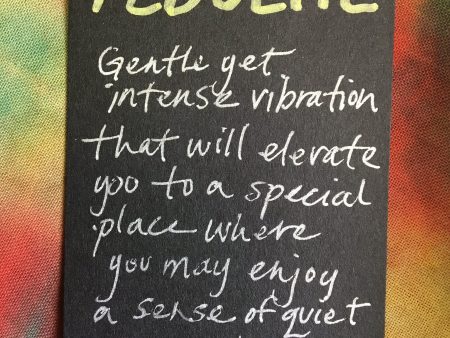 Gentle yet
intense vibration
that will elevate
you to a special
place where
you may enjoy
a sense of quiet